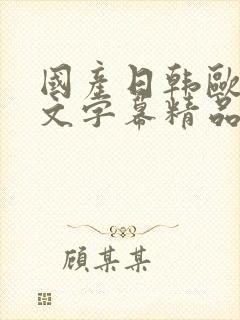 國產日韩歐
文字幕精品
顾某某